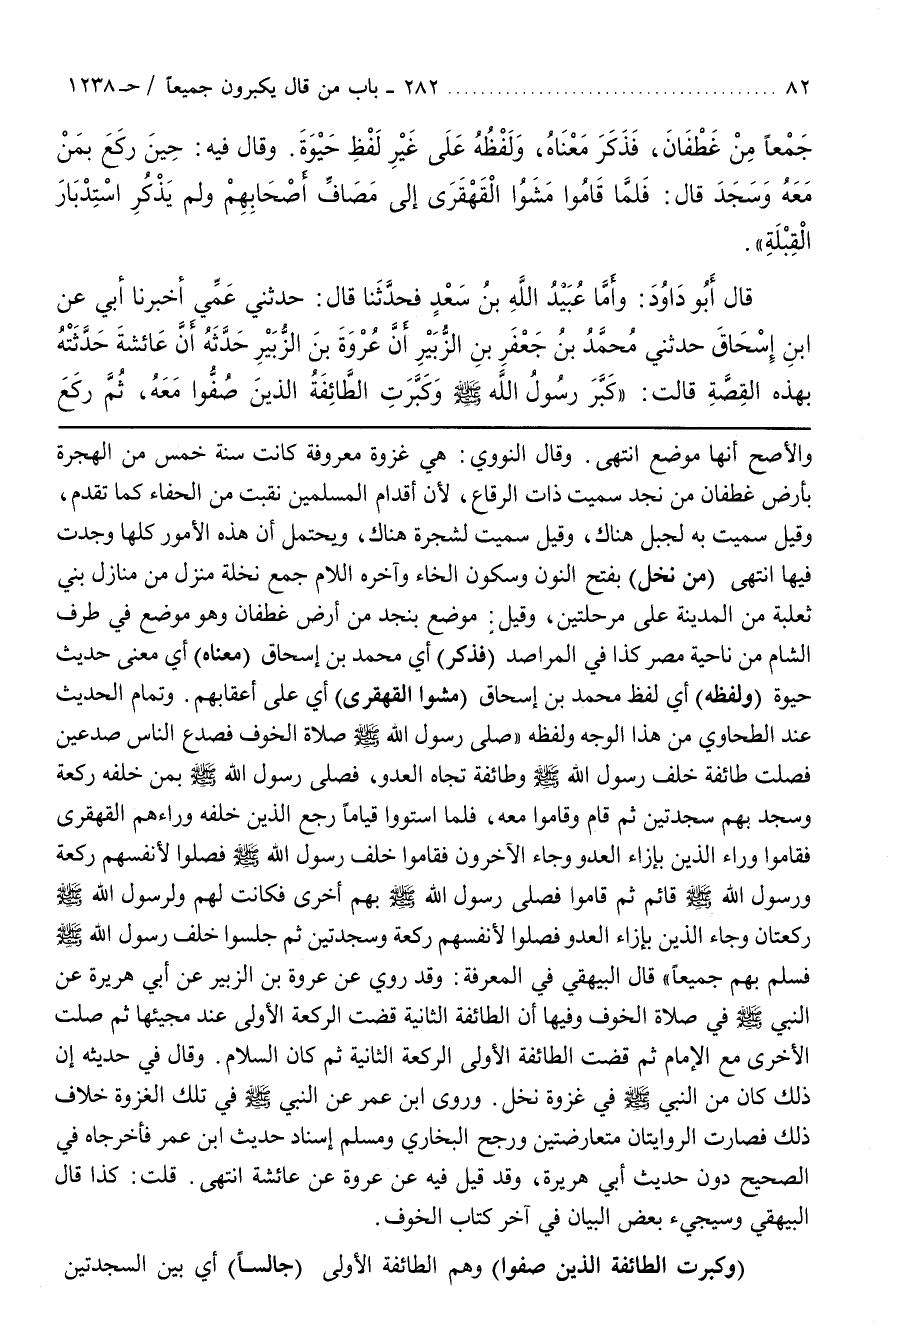 ٨٢ ........................................ ٢٨٢ ـ باب من قال يكبرون جميعاً / حـ ١٢٣٨
جَمْعاً مِنْ غَطْفَانَ، فَذَكَرَ مَعْنَاهُ، وَلَفْظُهُ عَلَى غَيْرِ لَفْظِ حَيْوَةَ. وقال فيه: حِينَ ركَعَ بمَنْ
مَعَهُ وَسَجَدَ قال: فَلمَّا قَامُوا مَشَوُا الْقَهْقَرَى إلى مَصَافِّ أَصْحَابِهِمْ ولم يَذْكُرِ اسْتِدْبَارَ
الْقِبْلَةِ».
قال أَبُو دَاوُدَ: وأَمَّا عُبَيْدُ اللَّهِ بنُ سَعْدٍ فحدَّثَنا قال: حدثني عَمِّي أخبرنا أبي عن
ابنِ إِسْحَاقَ حدثني مُحمَّدُ بنُ جَعْفَرِ بنِ الزُّبَيْرِ أَنَّ عُرْوَةَ بنَ الزُّبَيْرِ حَدَّثَهُ أَنَّ عَائشةَ حَدَّثَتْهُ
بهذه القِصَّةِ قالت: «كَبَّرَ رسولُ اللَّه ﷺ وَكَبَّرَتِ الطَّائفَةُ الذينَ صُفُّوا مَعَهُ، ثُمَّ ركَعَ
والأصح أنها موضع انتهى. وقال النووي: هي غزوة معروفة كانت سنة خمس من الهجرة
بأرض غطفان من نجد سميت ذات الرقاع، لأن أقدام المسلمين نقبت من الحفاء كما تقدم،
وقيل سميت به لجبل هناك، وقيل سميت لشجرة هناك، ويحتمل أن هذه الأمور كلها وجدت
فيها انتهى (من نخل) بفتح النون وسكون الخاء وآخره اللام جمع نخلة منزل من منازل بني
ثعلبة من المدينة على مرحلتين، وقيل: موضع بنجد من أرض غطفان وهو موضع في طرف
الشام من ناحية مصر كذا في المراصد (فذكر) أي محمد بن إسحاق (معناه) أي معنى حديث
حيوة (ولفظه) أي لفظ محمد بن إسحاق (مشوا القهقرى) أي على أعقابهم. وتمام الحديث
عند الطحاوي من هذا الوجه ولفظه «صلى رسول الله ﷺ صلاة الخوف فصدع الناس صدعين
فصلت طائفة خلف رسول الله ﷺ وطائفة تجاه العدو، فصلى رسول الله ﷺ بمن خلفه ركعة
وسجد بهم سجدتين ثم قام وقاموا معه، فلما استووا قياماً رجع الذين خلفه وراءهم القهقرى
فقاموا وراء الذين بإزاء العدو وجاء الآخرون فقاموا خلف رسول الله ﷺ فصلوا لأنفسهم ركعة
ورسول الله ﷺ قائم ثم قاموا فصلى رسول الله ﷺ بهم أخرى فكانت لهم ولرسول الله ﷺ
ركعتان وجاء الذين بإزاء العدو فصلوا لأنفسهم ركعة وسجدتين ثم جلسوا خلف رسول الله ﷺ
فسلم بهم جميعاً» قال البيهقي في المعرفة: وقد روي عن عروة بن الزبير عن أبي هريرة عن
النبي ﷺ في صلاة الخوف وفيها أن الطائفة الثانية قضت الركعة الأولى عند مجيئها ثم صلت
الأخرى مع الإمام ثم قضت الطائفة الأولى الركعة الثانية ثم كان السلام. وقال في حديثه إن
ذلك كان من النبي ﷺ في غزوة نخل. وروى ابن عمر عن النبي ﷺ في تلك الغزوة خلاف
ذلك فصارت الروايتان متعارضتين ورجح البخاري ومسلم إسناد حديث ابن عمر فأخرجاه في
الصحيح دون حديث أبي هريرة، وقد قيل فيه عن عروة عن عائشة انتهى. قلت: كذا قال
البيهقي وسيجيء بعض البيان في آخر كتاب الخوف.
(وكبرت الطائفة الذين صفوا) وهم الطائفة الأولى (جالساً) أي بين السجدتين